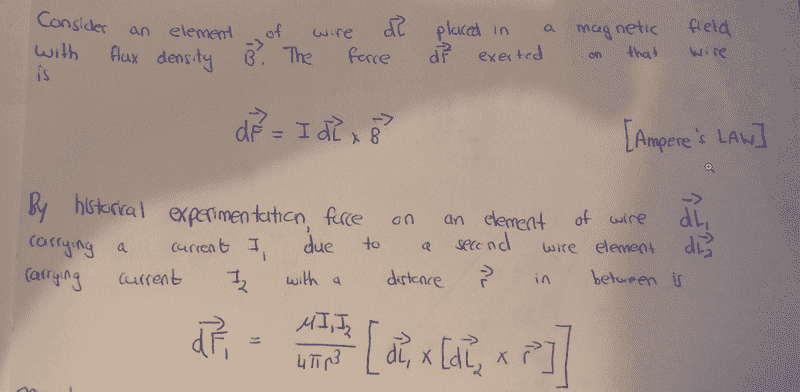 Consider an element of wire dL⃗ placed in a magnetic field
with flux density B⃗. The force dF⃗ exerted on that wire
is
dF⃗ = I dL⃗ x B⃗ [Ampere's LAW]
By historical experimentation, force on an element of wire dL⃗₁
carrying a current I₁ due to a second wire element dL⃗₂
carrying current I₂ with a distance r⃗ in between is
dF⃗₁ = μI₁I₂ / 4πr³ [dL⃗₁ x [dL⃗₂ x r⃗]]